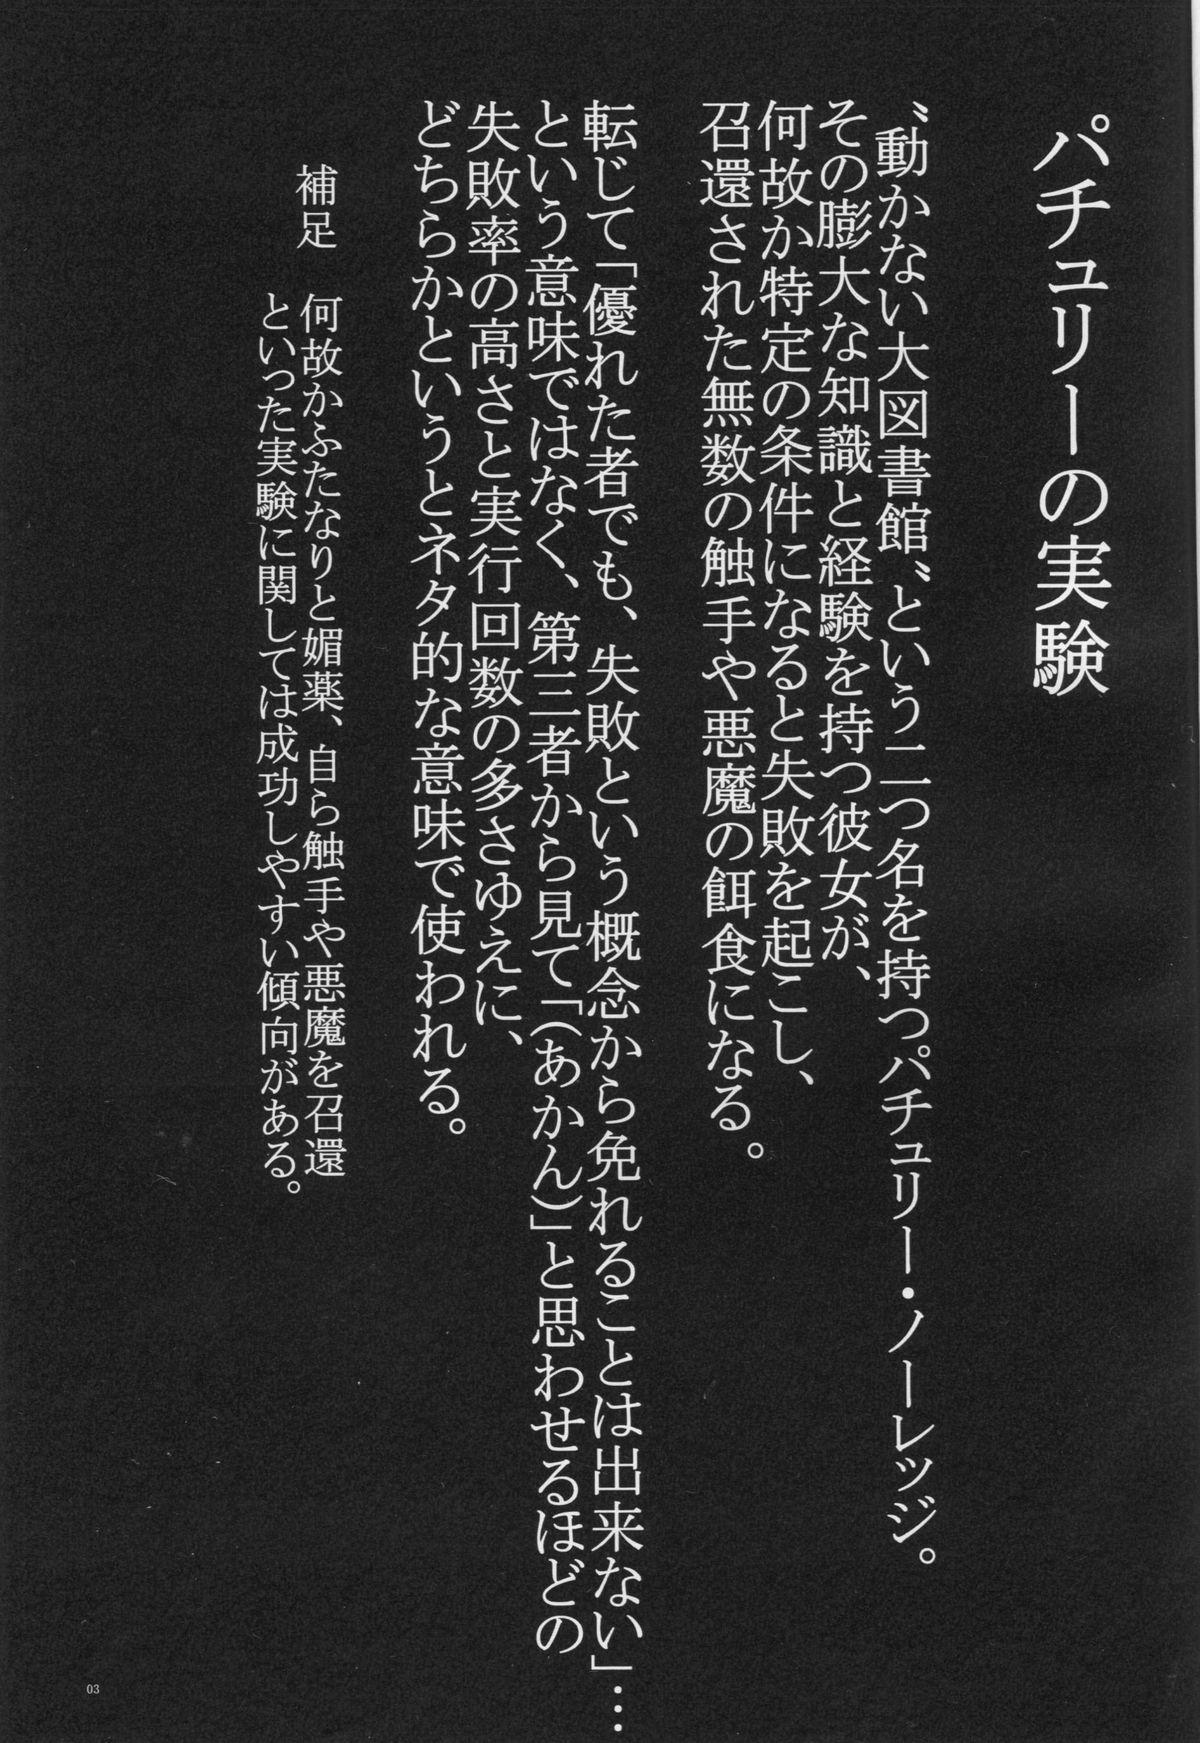 パチュリーの実験
〝動かない大図書館〟という二つ名を持つパチュリー・ノーレッジ。
その膨大な知識と経験を持つ彼女が、
何故か特定の条件になると失敗を起こし、
召還された無数の触手や悪魔の餌食になる。
転じて「優れた者でも、失敗という概念から免れることは出来ない」…
という意味ではなく、第三者から見て「(あかん)」と思わせるほどの
失敗率の高さと実行回数の多さゆえに、
どちらかというとネタ的な意味で使われる。
補足　何故かふたなりと媚薬、自ら触手や悪魔を召還
といった実験に関しては成功しやすい傾向がある。
03